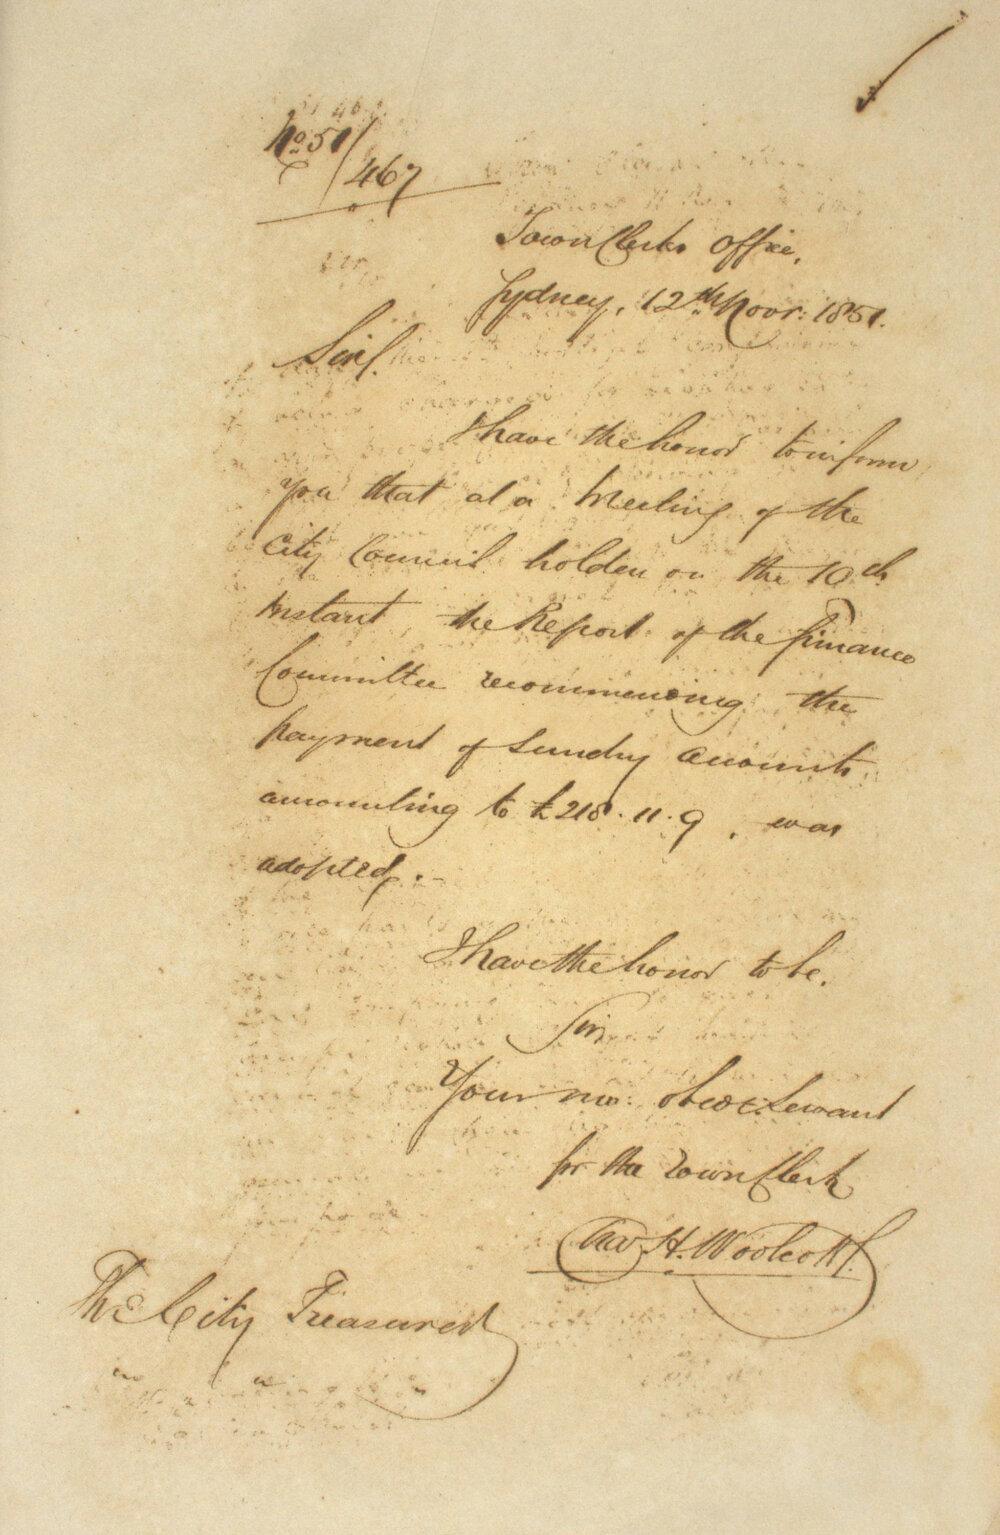 No. 51/
467
Town Clerks Office,
Sydney, 12th Novr: 1851.
Sir,
I have the honor to inform
you that at a Meeting of the
City Council holden on the 10th
Instant, the Report of the Finance
Committee recommending the
payment of Sundry accounts
amounting to £218.11.9, was
adopted.-
I have the honor to be,
Sir,
Your mo: obedt. Servant
for the Town Clerk
Chas H. Woolcott.
The City Treasurer